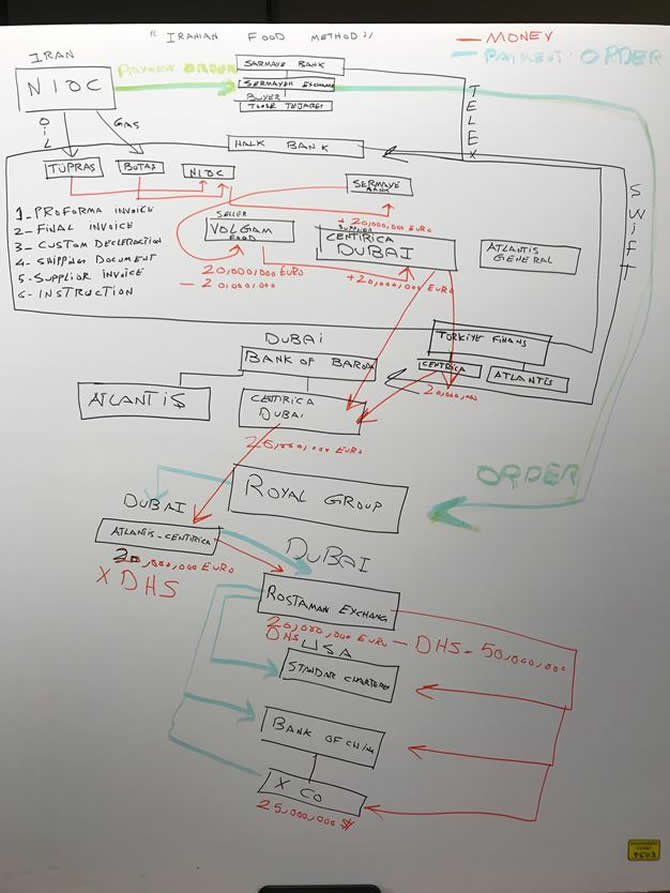 " IRANIAN FOOD METHOD "
— MONEY
— PAYMENT ORDER
IRAN
NIOC
PAYMENT ORDER
SARMAYE BANK
SERMAYEH EXCHANGE
BUYER
TELEX
OIL
GAS
HALK BANK
SWIFT
TUPRAS
BOTAS
NIOC
SERMAYE
BANK
1_ PROFORMA INVOICE
2_ FINAL INVOICE
3_ CUSTOM DECLERACTION
4_ SHIPPING DOCUMENT
5_ SUPPLIOR INVOICE
6_ INSTRUCTION
SELLER
VOLGAM
FOOD
+ 20,000,000 EURO
SUPPLIER
CENTIRICA
DUBAI
ATLANTIS
GENERAL
20,000,000 EURO
— 20,000,000
+20,000,000 EURO
TÜRKIYE FINANS
CENTRICA
ATLANTIS
20,000,000
DUBAI
BANK OF BARODA
ATLANTIS
CENTIRICA
DUBAI
20,000,000 EURO
ORDER
ROYAL GROUP
DUBAI
ATLANTIS-CENTIRICA
20,000,000 EURO
X DHS
DUBAI
ROSTAMAN EXCHANG
20,000,000 EURO — DHS - 50,000,000
DHS
USA
STANDAR CHARTERED
BANK OF CHINA
X CO
25,000,000 $